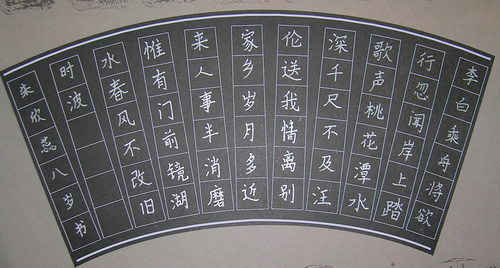 李白乘舟将欲
行忽闻岸上踏
歌声桃花潭水
深千尺不及汪
伦送我情离别
家乡岁月多近
来人事半消磨
惟有门前镜湖
水春风不改旧
时波
欣蕊八岁书